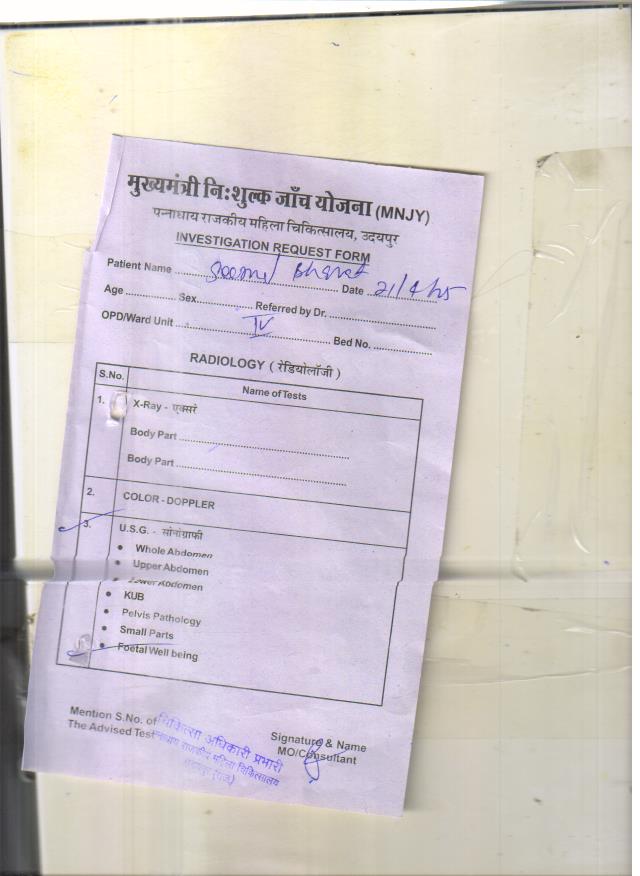 मुख्यमंत्री निःशुल्क जाँच योजना (MNJY)
पन्नाधाय राजकीय महिला चिकित्सालय, उदयपुर
INVESTIGATION REQUEST FORM
Patient Name .............. Bharat .............. Date 21/4/15
Age .............. Sex.............. Referred by Dr. ..............
OPD/Ward Unit .............. IV .............. Bed No. ..............
RADIOLOGY ( रेडियोलॉजी )
S.No. Name of Tests
1. X-Ray - एक्सरे
Body Part ..............
Body Part ..............
2. COLOR - DOPPLER
3. U.S.G. - सोनोग्राफी
• Whole Abdomen
• Upper Abdomen
• Lower Abdomen
• KUB
• Pelvis Pathology
• Small Parts
• Foetal Well being
Mention S.No. of
The Advised Test
चिकित्सा अधिकारी प्रभारी
पन्नाधाय राजकीय महिला चिकित्सालय
उदयपुर (राज.)
Signature & Name
MO/Consultant